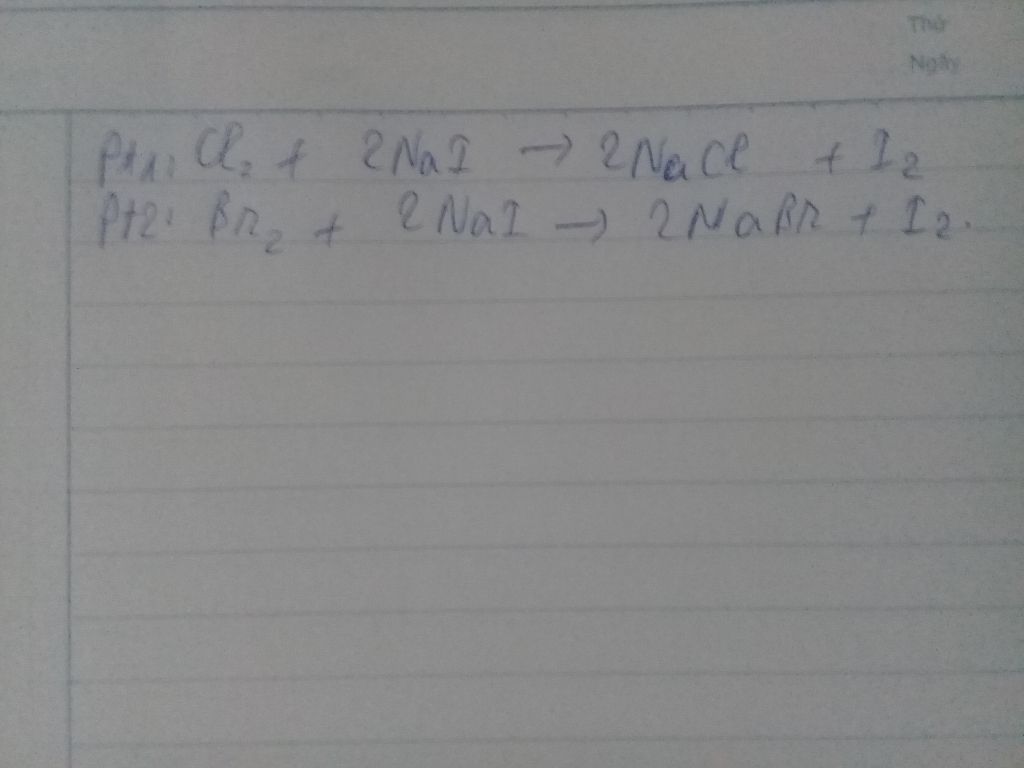 Thứ
Ngày
Pt1: Cl₂ + 2NaI → 2NaCl + I₂
Pt2: Br₂ + 2NaI → 2NaBr + I₂.